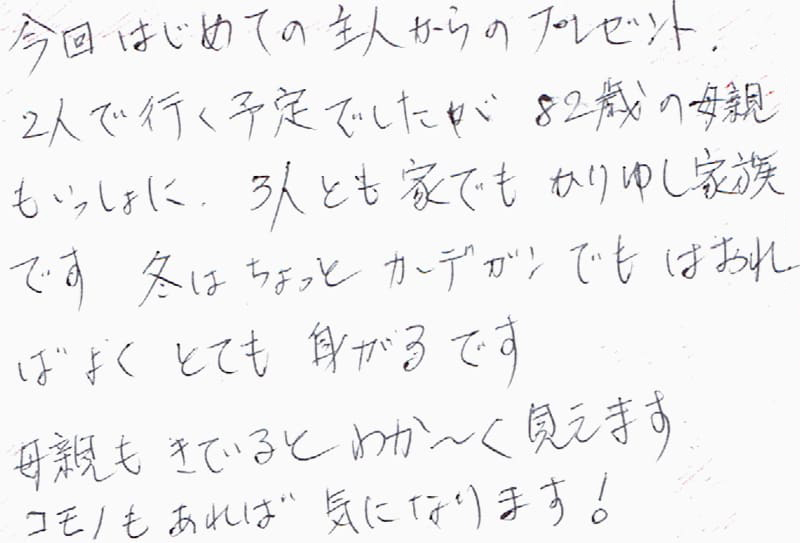 今回はじめての主人からのプレゼント.
2人で行く予定でしたが 82歳の母親
もいっしょに. 3人とも家でも かりゆし家族
です 冬はちょっと カーデガンでも はおれ
ばよく とても 身がるです
母親も きているとわか〜く見えます
コモノもあれば 気になります!